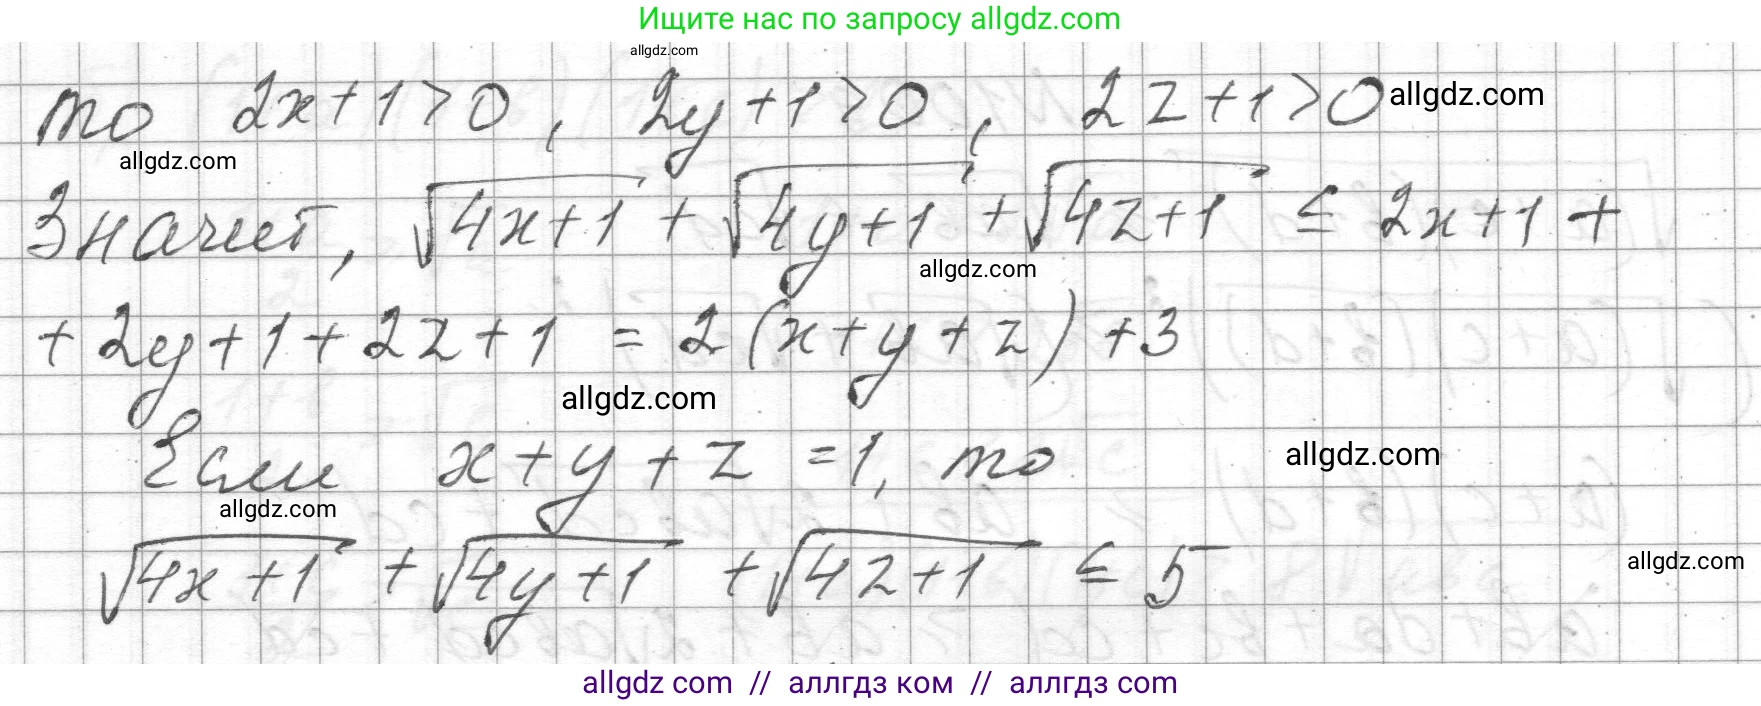 Ищите нас по запросу allgdz.com
allgdz.com
то 2x+1>0, 2y+1>0, 2z+1>0 allgdz.com
allgdz.com
Значит, √(4x+1) + √(4y+1) + √(4z+1) ≤ 2x+1 +
allgdz.com
+ 2y+1+2z+1 = 2(x+y+z)+3
allgdz.com
Если x+y+z=1, то
allgdz.com
allgdz.com
√(4x+1) + √(4y+1) + √(4z+1) ≤ 5
allgdz.com
allgdz com // аллгдз ком // аллгдз com